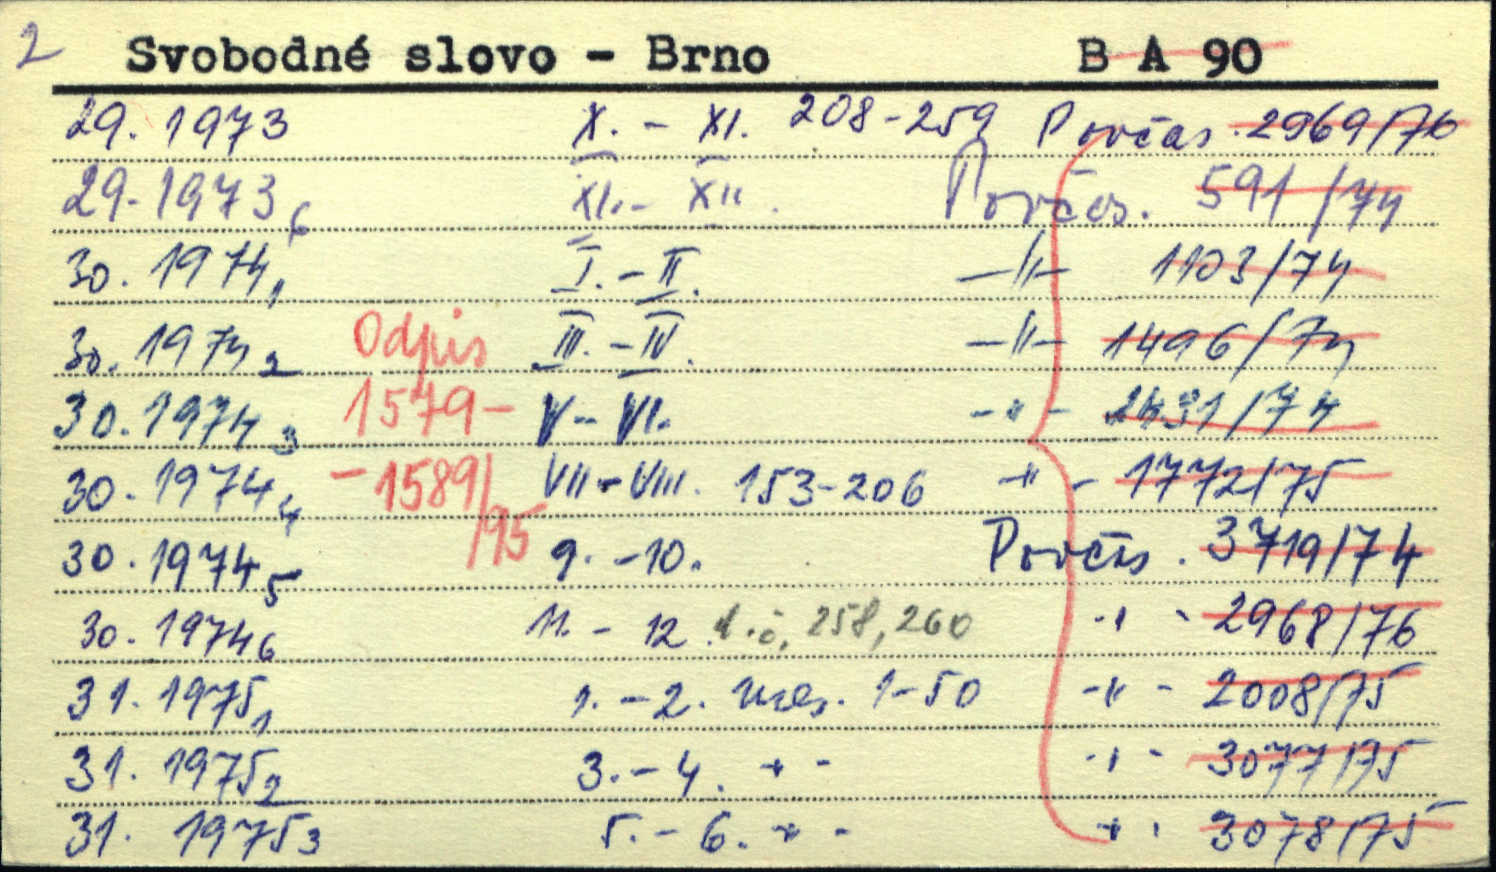 2 Svobodné slovo - Brno B A 90
29. 1973 X. - XI. 208-259 Povčas. 2969/76
29. 1973 6 XI. - XII. Povčas. 591/74
30. 1974 1 I. - II. -"- 1103/74
30. 1974 2 Odpis III. - IV. -"- 1496/74
30. 1974 3 1579- V - VI. -"- 2431/74
30. 1974 4 -1589/95 VII - VIII. 153-206 " - 1772/75
30. 1974 5 9. - 10. Povčas. 3719/74
30. 1974 6 11. - 12. 258, 260 -"- 2968/76
31. 1975 1 1. - 2. 1-50 -"- 2008/75
31. 1975 2 3. - 4. " - -"- 3077/75
31. 1975 3 5. - 6. " - " 3078/75